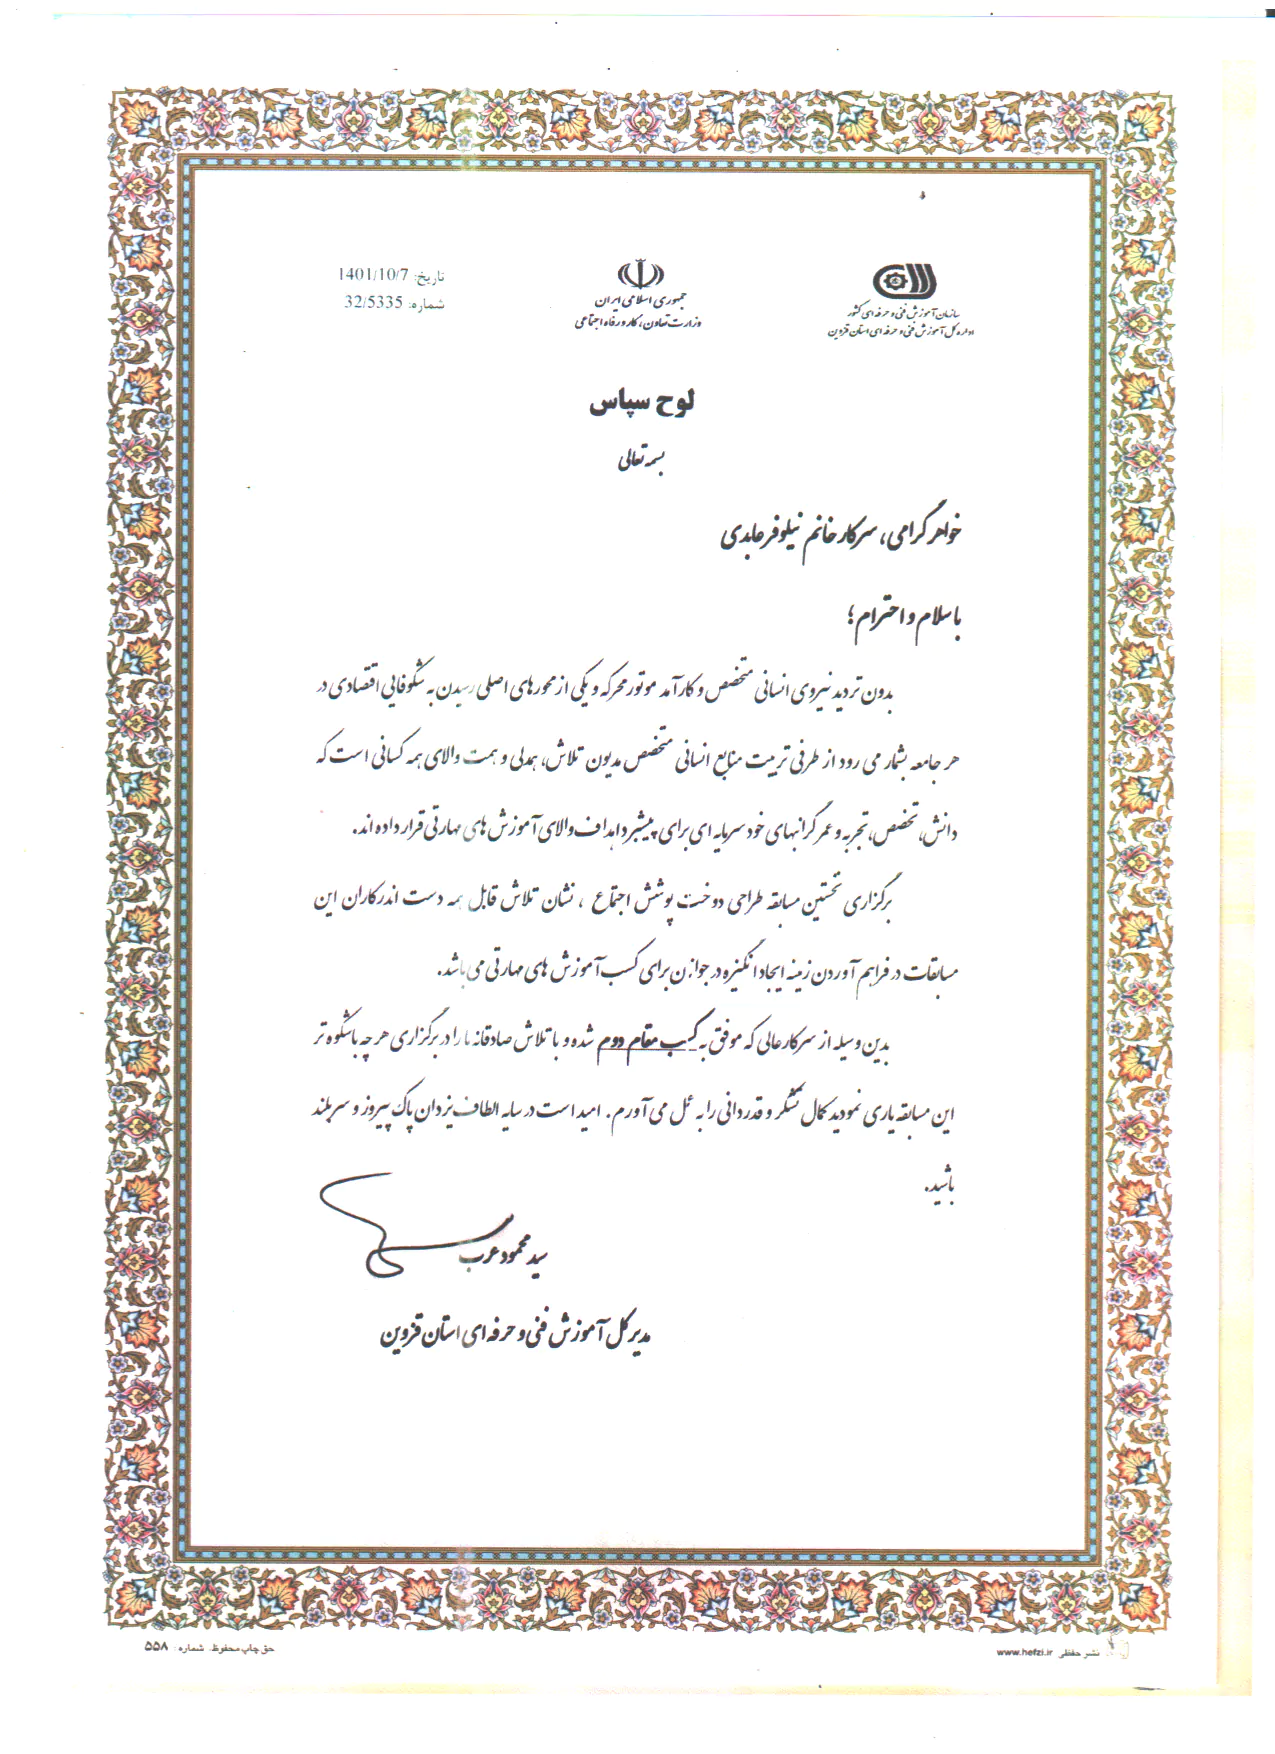 سازمان آموزش فنی و حرفه ای کشور
اداره کل آموزش فنی و حرفه ای استان قزوین
جمهوری اسلامی ایران
وزارت تعاون، کار و رفاه اجتماعی
تاریخ: 1401/10/7
شماره: 32/5335
لوح سپاس
بسمه تعالی
خواهر گرامی، سرکار خانم نیلوفر عابدی
با سلام و احترام؛
بدون تردید نیروی انسانی متخصص و کارآمد موتور محرکه و یکی از محورهای اصلی رسیدن به شکوفایی اقتصادی در
هر جامعه بشمار می رود از طرفی تربیت منابع انسانی متخصص مدیون تلاش، همدلی و همت والای همه کسانی است که
دانش، تخصص، تجربه و عمر گرانبهای خود سرمایه ای برای پیشبرد اهداف والای آموزش های مهارتی قرار داده اند.
برگزاری نخستین مسابقه طراحی دوخت پوشش اجتماع ، نشان تلاش قابل همه دست اندرکاران این
مسابقات در فراهم آوردن زمینه ایجاد انگیزه در جوانان برای کسب آموزش های مهارتی می باشد.
بدین وسیله از سرکار عالی که موفق به کسب مقام دوم شده و با تلاش صادقانه ما را در برگزاری هر چه باشکوه تر
این مسابقه یاری نمودید کمال تشکر و قدردانی را به عمل می آورم. امید است در سایه الطاف یزدان پاک پیروز و سربلند
باشید.
سید محمود عرب
مدیر کل آموزش فنی و حرفه ای استان قزوین
نشر حفظی www.hefzi.ir
حق چاپ محفوظ. شماره: ۵۵۸